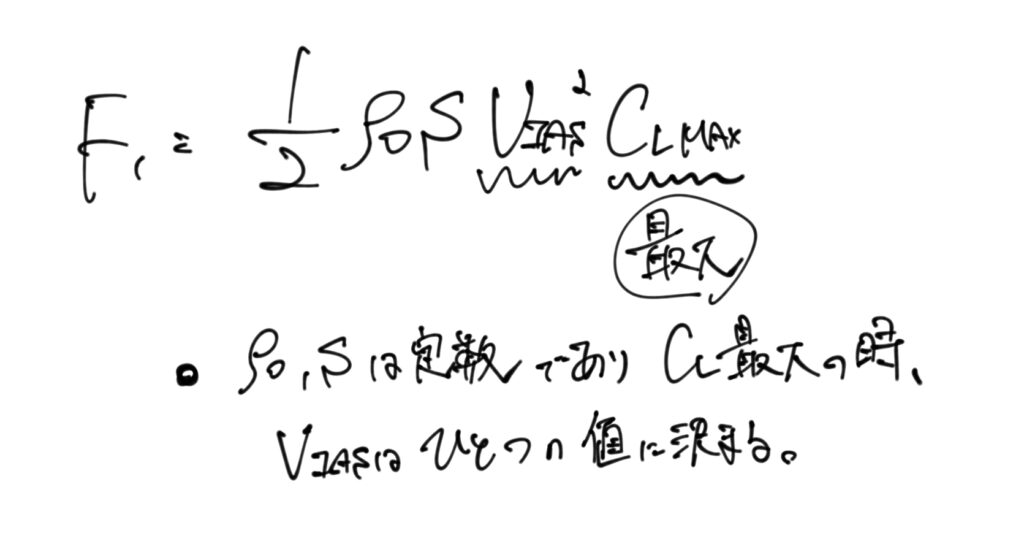 F₁ = 1/2 ρ₀ S V_IAS² C_L MAX
最大
• ρ₀, S は定数であり C_L 最大の時、
V_IASは ひとつの値に決まる。